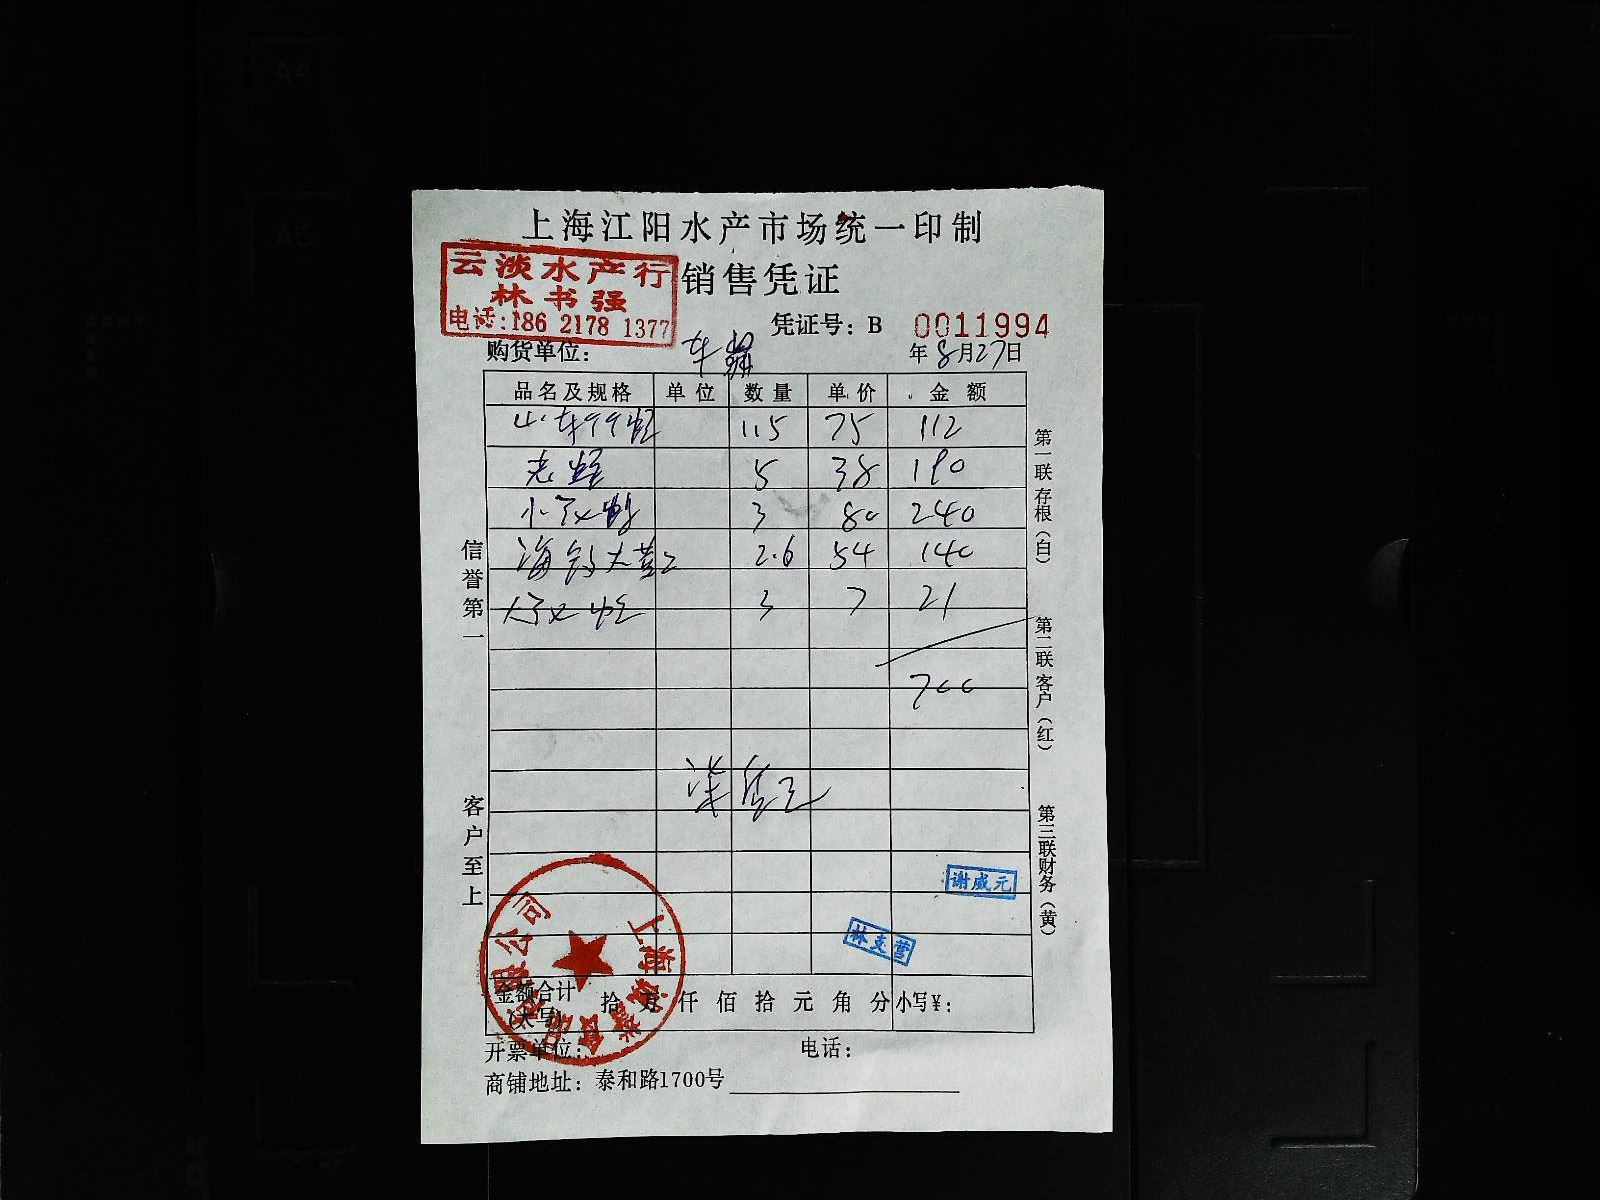 A4
A5
上海江阳水产市场统一印制
云淡水产行
林书强
电话:186 2178 1377
销售凭证
凭证号：B 0011994
购货单位：
年8月27日
品名及规格 单位 数量 单价 金额
115 75 112
老 5 38 190
小 3 80 240
海 大 2.6 54 140
大 3 7 21
700
信誉第一
客户至上
第一联存根（白）
第二联客户（红）
第三联财务（黄）
谢威元
林支营
上海 食品有限公司
金额合计（大写） 拾万仟佰拾元角分 小写¥：
开票单位： 电话：
商铺地址：泰和路1700号